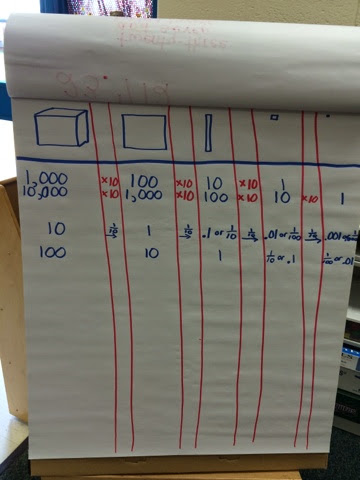 1,000 ×10 100 ×10 10 ×10 1
10,000 ×10 1,000 ×10 100 ×10 10 ×10 1
10 1/10 → 1 1/10 → .1 or 1/10 1/10 → .01 or 1/100 1/10 → .001 or
100 10 1 1/10 or .1 1/100 or .01